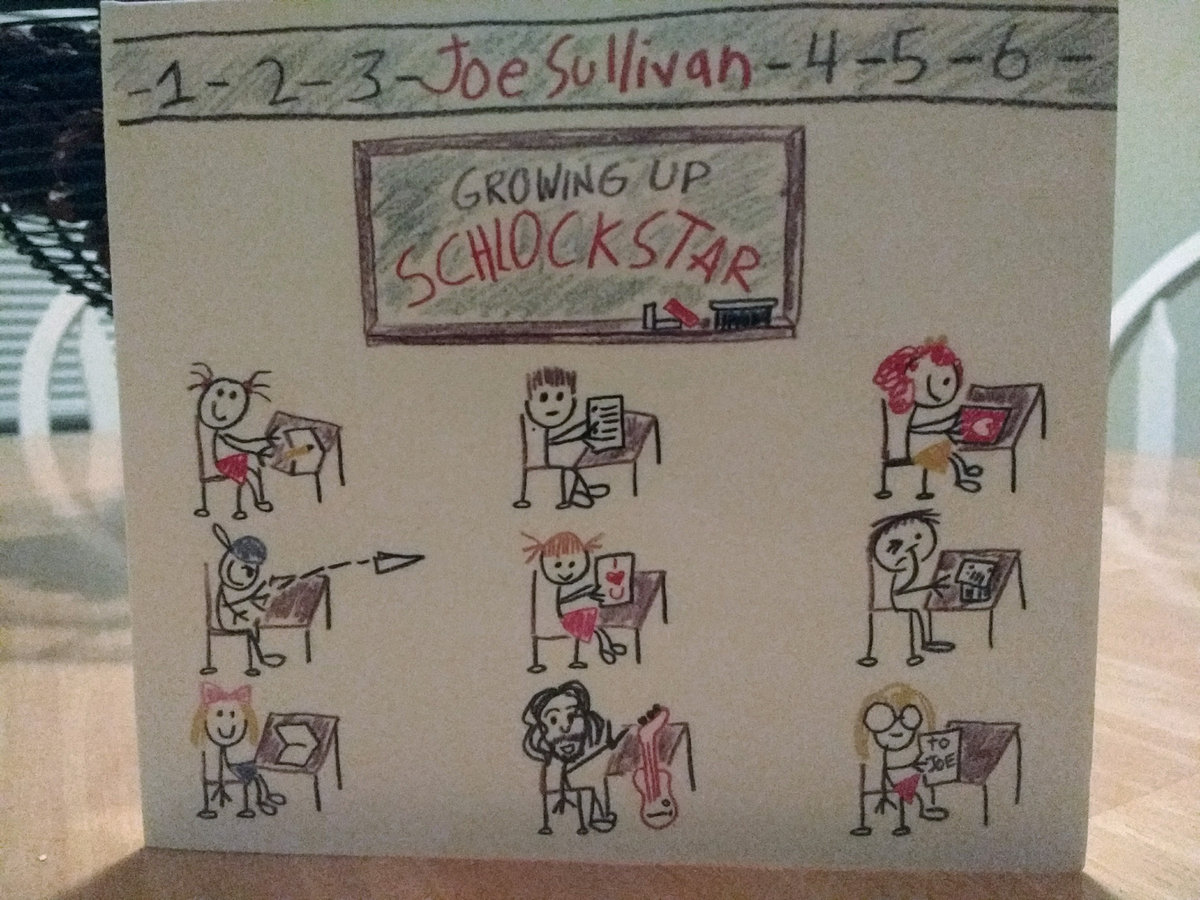 -1-2-3-Joe Sullivan-4-5-6-
GROWING UP
SCHLOCKSTAR
TO
JOE